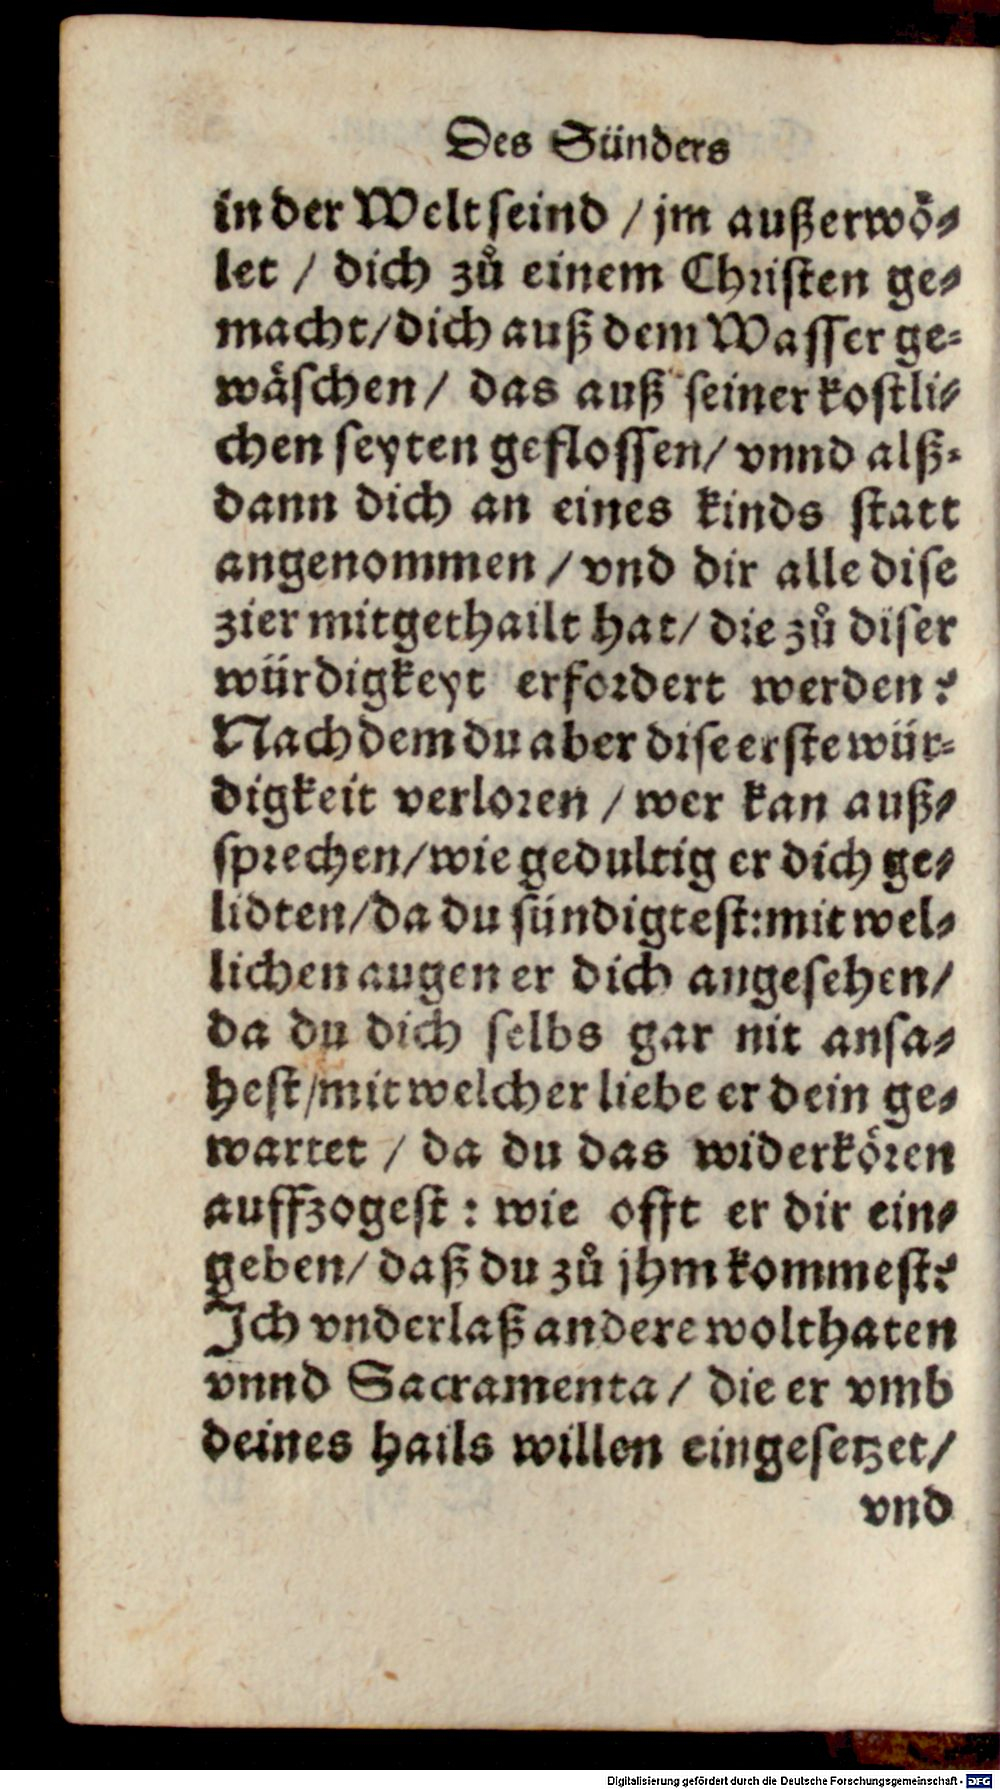 Des Sünders
in der Welt seind / jm außerwö-
let / dich zů einem Christen ge-
macht/ dich auß dem Wasser ge-
wäschen/ das auß seiner kostli-
chen seyten geflossen/ vnnd alß-
dann dich an eines kinds statt
angenommen / vnd dir alle dise
zier mitgethailt hat/ die zů diser
würdigkeyt erfordert werden?
Nach dem du aber dise erste wür-
digkeit verloren / wer kan auß-
sprechen/ wie gedultig er dich ge-
lidten/ da du sündigtest: mit wel-
lichen augen er dich angesehen/
da du dich selbs gar nit ansa-
hest/ mit welcher liebe er dein ge-
wartet / da du das widerkören
auffzogest : wie offt er dir ein-
geben/ daß du zů jhm kommest?
Ich vnderlaß andere wolthaten
vnnd Sacramenta / die er vmb
deines hails willen eingesetzet/
vnd
Digitalisierung gefördert durch die Deutsche Forschungsgemeinschaft - DFG